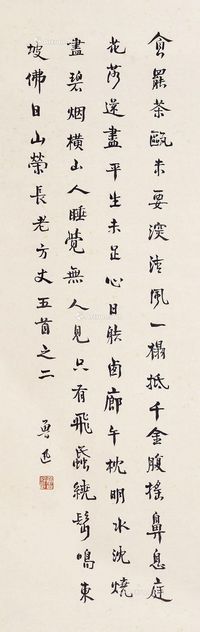 食罷茶甌未要深清風一榻抵千金腹搖鼻息庭
花落還盡平生未足心日射回廊午枕明水沈燒
盡碧烟橫山人睡覺無人見只有飛蟁繞鬢鳴東
坡佛日山榮長老方丈五首之二